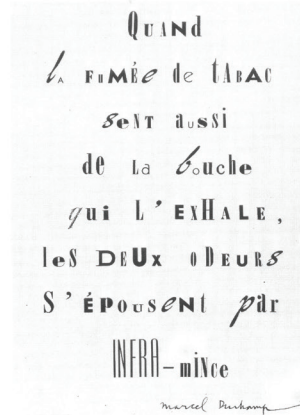 QUAND
LA FUMÉE de tABAC
seNT aussi
de La bouche
qui L'EXHALE,
les DEUX ODEURS
S'ÉPOUSENT pAr
INFRA-mINce
Marcel Duchamp